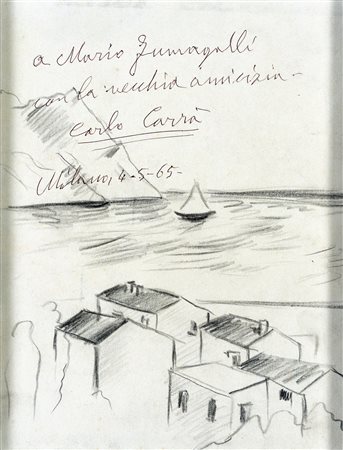 a Mario Fumagalli
con la vecchia amicizia -
Carlo Carrà
Milano, 4-5-65-